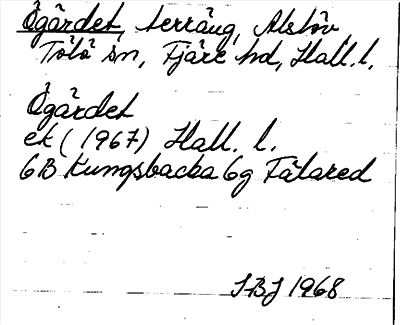 Ögärdet, terräng, Alslöv
Tölö sn, Fjäre hd, Hall. l.
Ögärdet
ek (1967) Hall. l.
6B Kungsbacka 6g Fälared
SBJ 1968